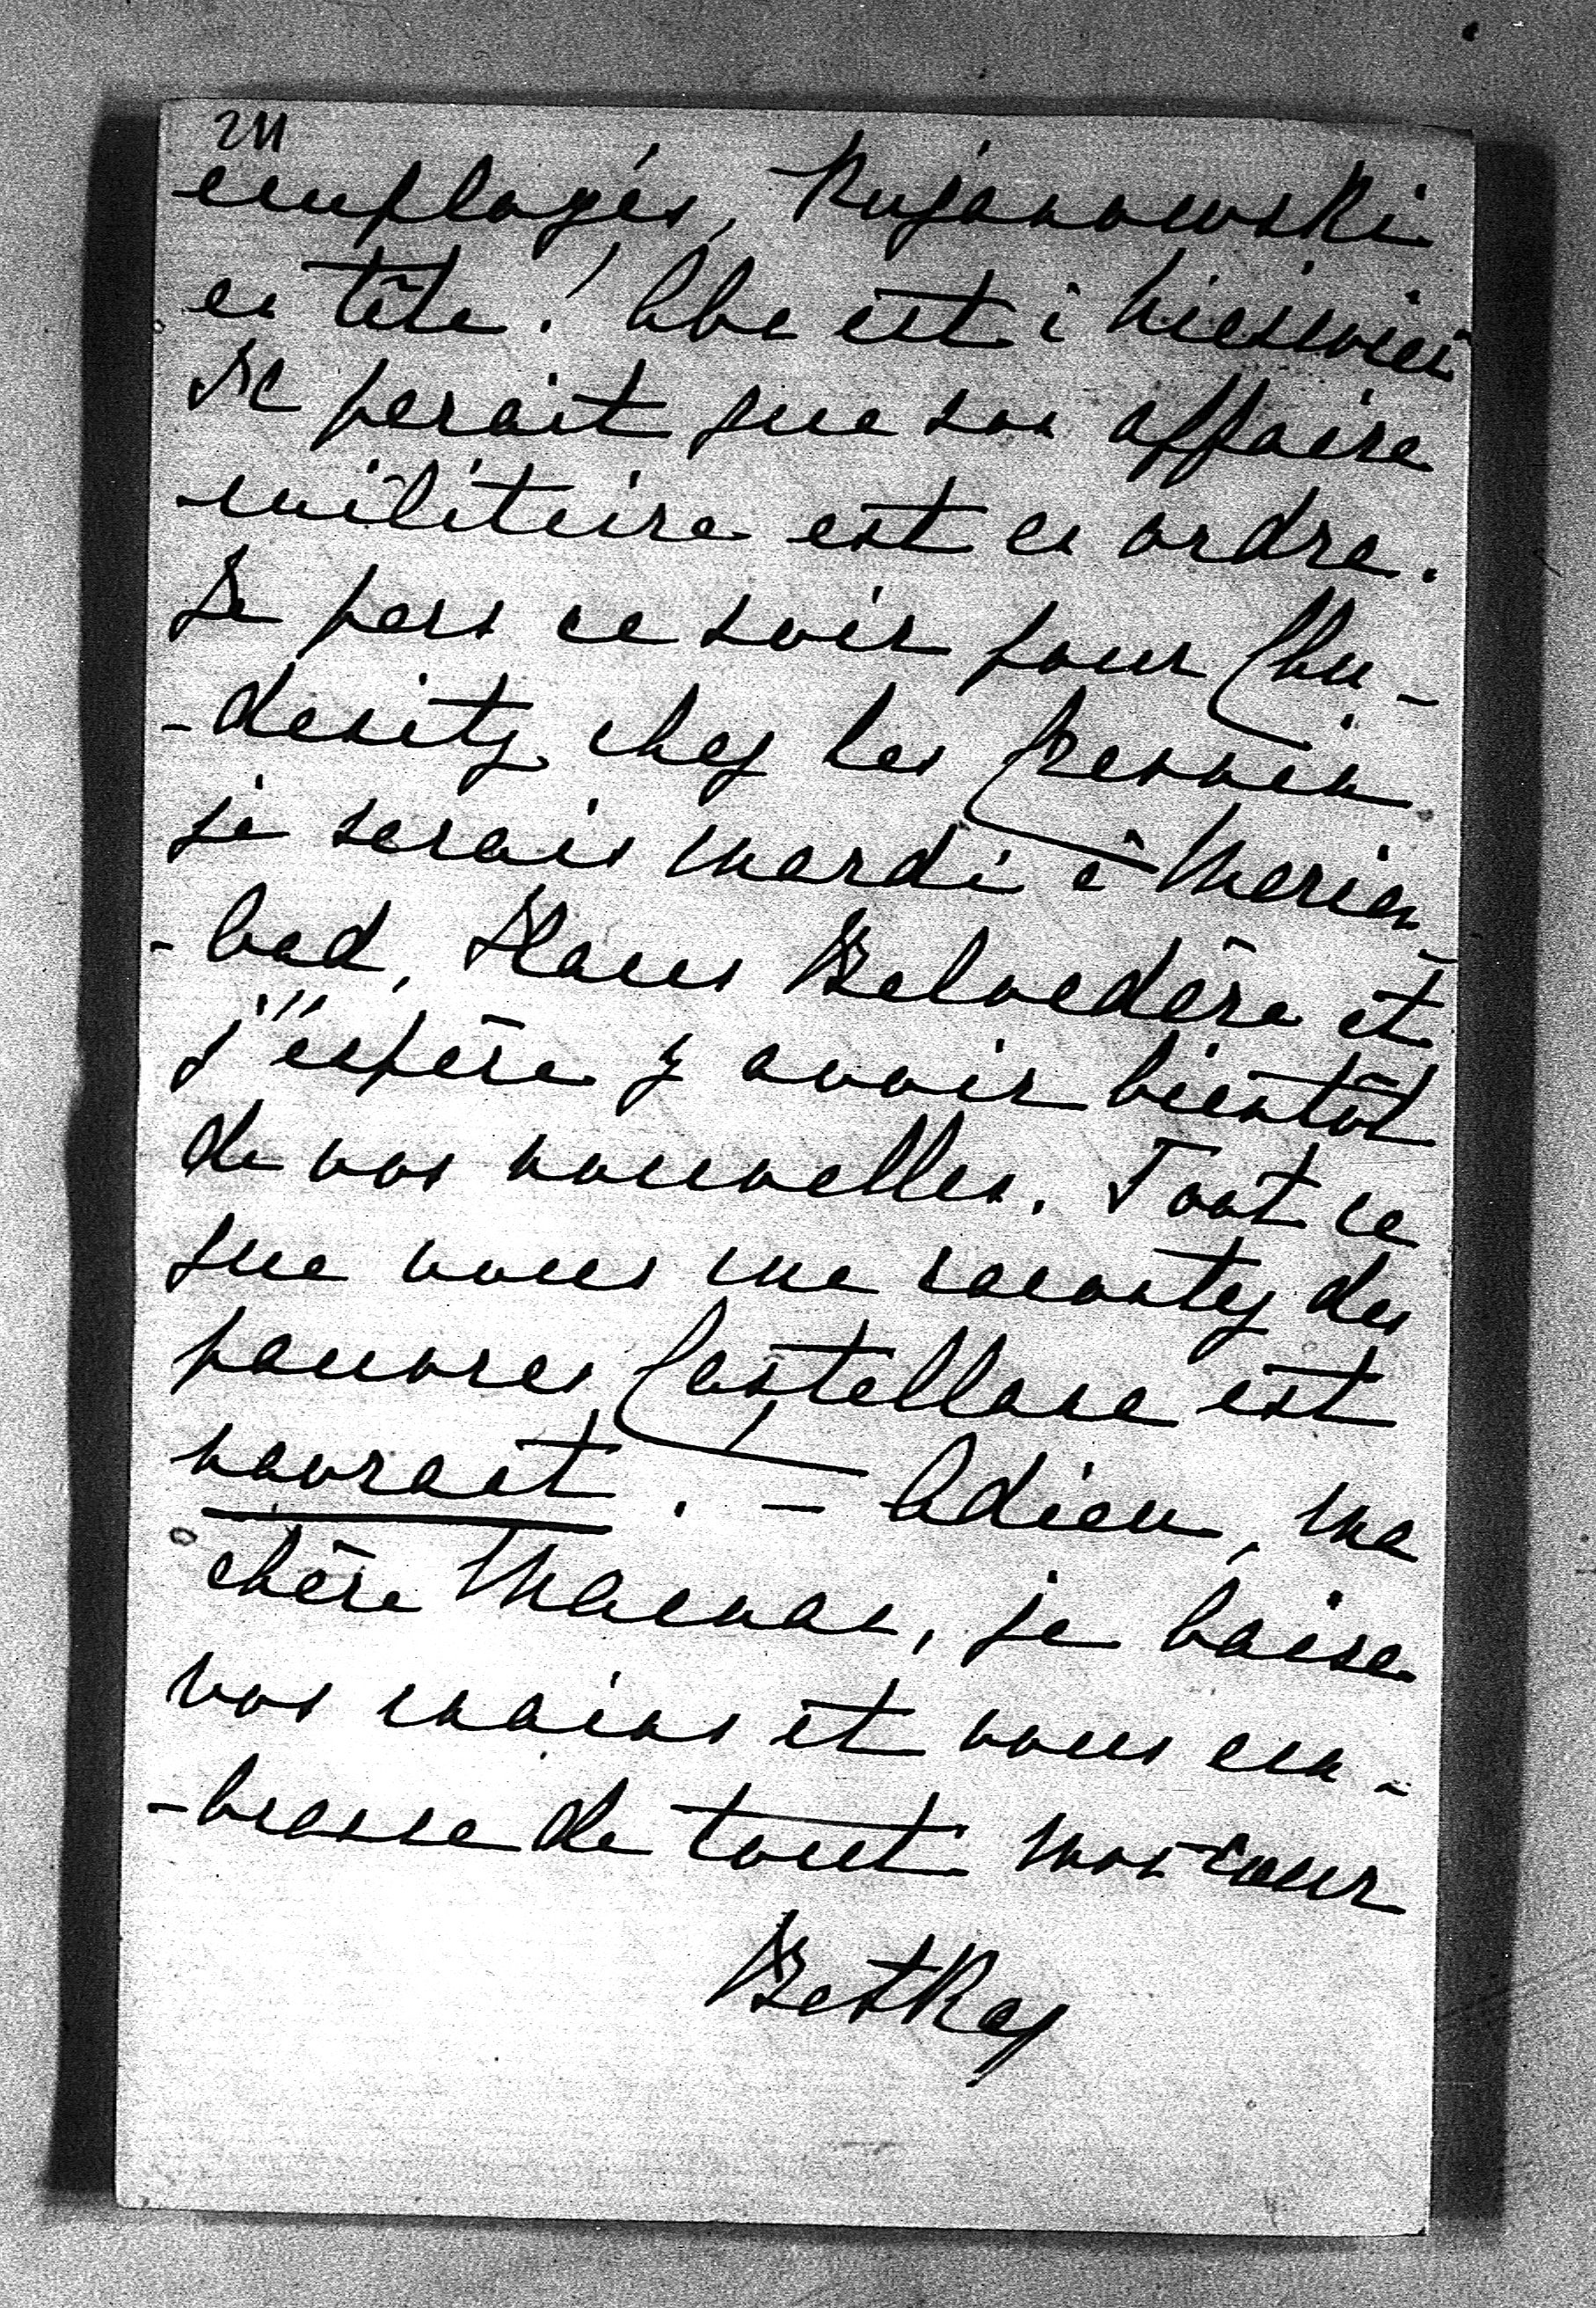 211
employés, Kujanowski
en tête! Abe est à Nieśwież
Il parait que son affaire
militaire est en ordre.
Je pars ce soir pour Chu-
-denitz chez les Czernin.
je serais mardi à Marien-
-bad, Haus Belvedère et
j'espère y avoir bientôt
de vos nouvelles. Tout ce
que vous me racontez des
pauvres Castellane est
navrant. – Adieu, ma
chère Maman, je baise
vos mains et vous em-
-brasse de tout mon cœur